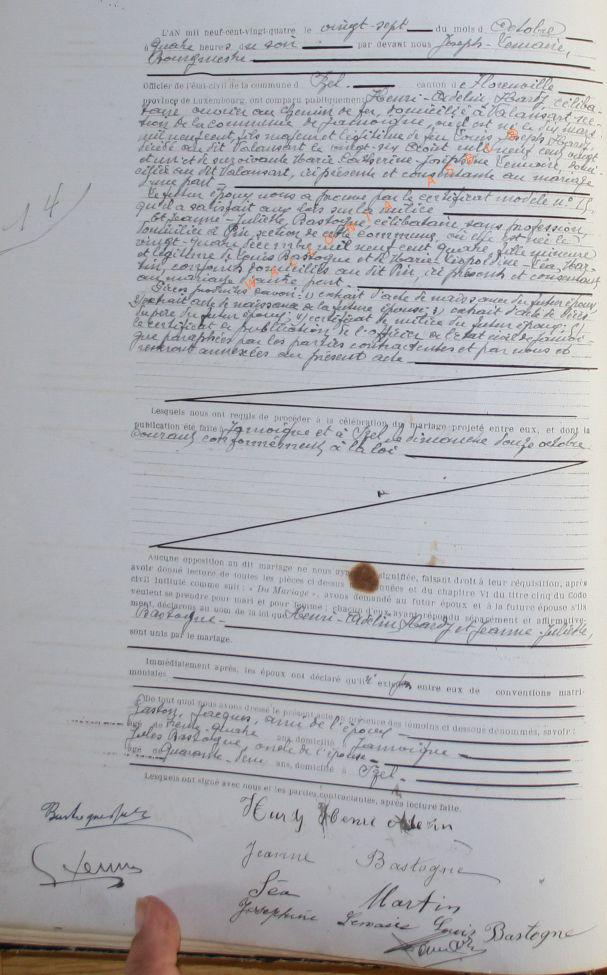 L'AN mil neuf-cent-vingt-quatre, le vingt-sept du mois d'Octobre
à quatre heures du soir par devant nous Joseph Lemaire,
Bourgmestre
Officier de l'état-civil de la commune d' Izel canton de Florenville
province de Luxembourg, ont comparu publiquement Henri-Adelin Hardy, céliba-
taire, ouvrier au chemin de fer, domicilié à Valansart sec-
tion de la commune de Jamoigne, où il est né le dix mars
mil neuf cent, fils majeur et légitime de feu Louis Hardy,
décédé au dit Valansart le vingt-six Août mil neuf cent vingt
et un et de survivante Marie Catherine Joséphine Lemaire domi-
ciliée au dit Valansart, ici présente et consentante au mariage
d'une part.
Le futur époux nous a prouvé par le certificat modèle n°
qu'il a satisfait aux lois sur la milice
Et Jeanne-Juliette Bastogne célibataire sans profession,
domiciliée à Pin section de cette commune, où elle est née le
vingt-quatre décembre mil neuf cent quatre, fille mineure
et légitime de Louis Bastogne et de Marie Léopoldine Léa Mar-
tin, conjoints domiciliés au dit Pin, ici présents et consentant
au mariage d'autre part.
Pièces produites savoir: 1) extrait d'acte de naissance du futur époux,
2) extrait acte de naissance de la future épouse; 3) extrait d'acte de décès
du père du futur époux; 4) certificat de milice du futur époux; 5)
le certificat de publication de l'officier de l'état civil de Jamoi-
gne paraphées par les parties contractantes et par nous et
resteront annexées au présent acte
WALLONIA ASBL
14
Lesquels nous ont requis de procéder à la célébration du mariage projeté entre eux, et dont la
publication été faite à Jamoigne et à Izel le dimanche douze octobre
courant, conformément à la loi
Aucune opposition au dit mariage ne nous ayant signifiée, faisant droit à leur réquisition, après
avoir donné lecture de toutes les pièces ci-dessus et du chapitre VI du titre cinq du Code
civil intitulé comme suit : « Du Mariage », avons demandé au futur époux et à la future épouse s'ils
veulent se prendre pour mari et pour femme ; chacun d'eux ayant répondu séparément et affirmative-
ment, déclarons au nom de la loi que Henri-Adelin Hardy et Jeanne Juliette,
Bastogne
sont unis par le mariage.
Immédiatement après, les époux ont déclaré qu'il n'existe pas entre eux de conventions matri-
moniales
De tout quoi nous avons dressé le présent acte en présence des témoins ci-dessous dénommés, savoir :
Gaston Jacques, ami de l'époux
âgé de trente-quatre ans, domicilié à Jamoigne
Jules Bastogne, oncle de l'épouse
âgé de quarante-deux ans, domicilié à Izel
Lesquels ont signé avec nous et les parties contractantes, après lecture faite.
Hardy Henri Adelin
Jeanne Bastogne
Léa Martin
Joséphine Lemaire Louis Bastogne